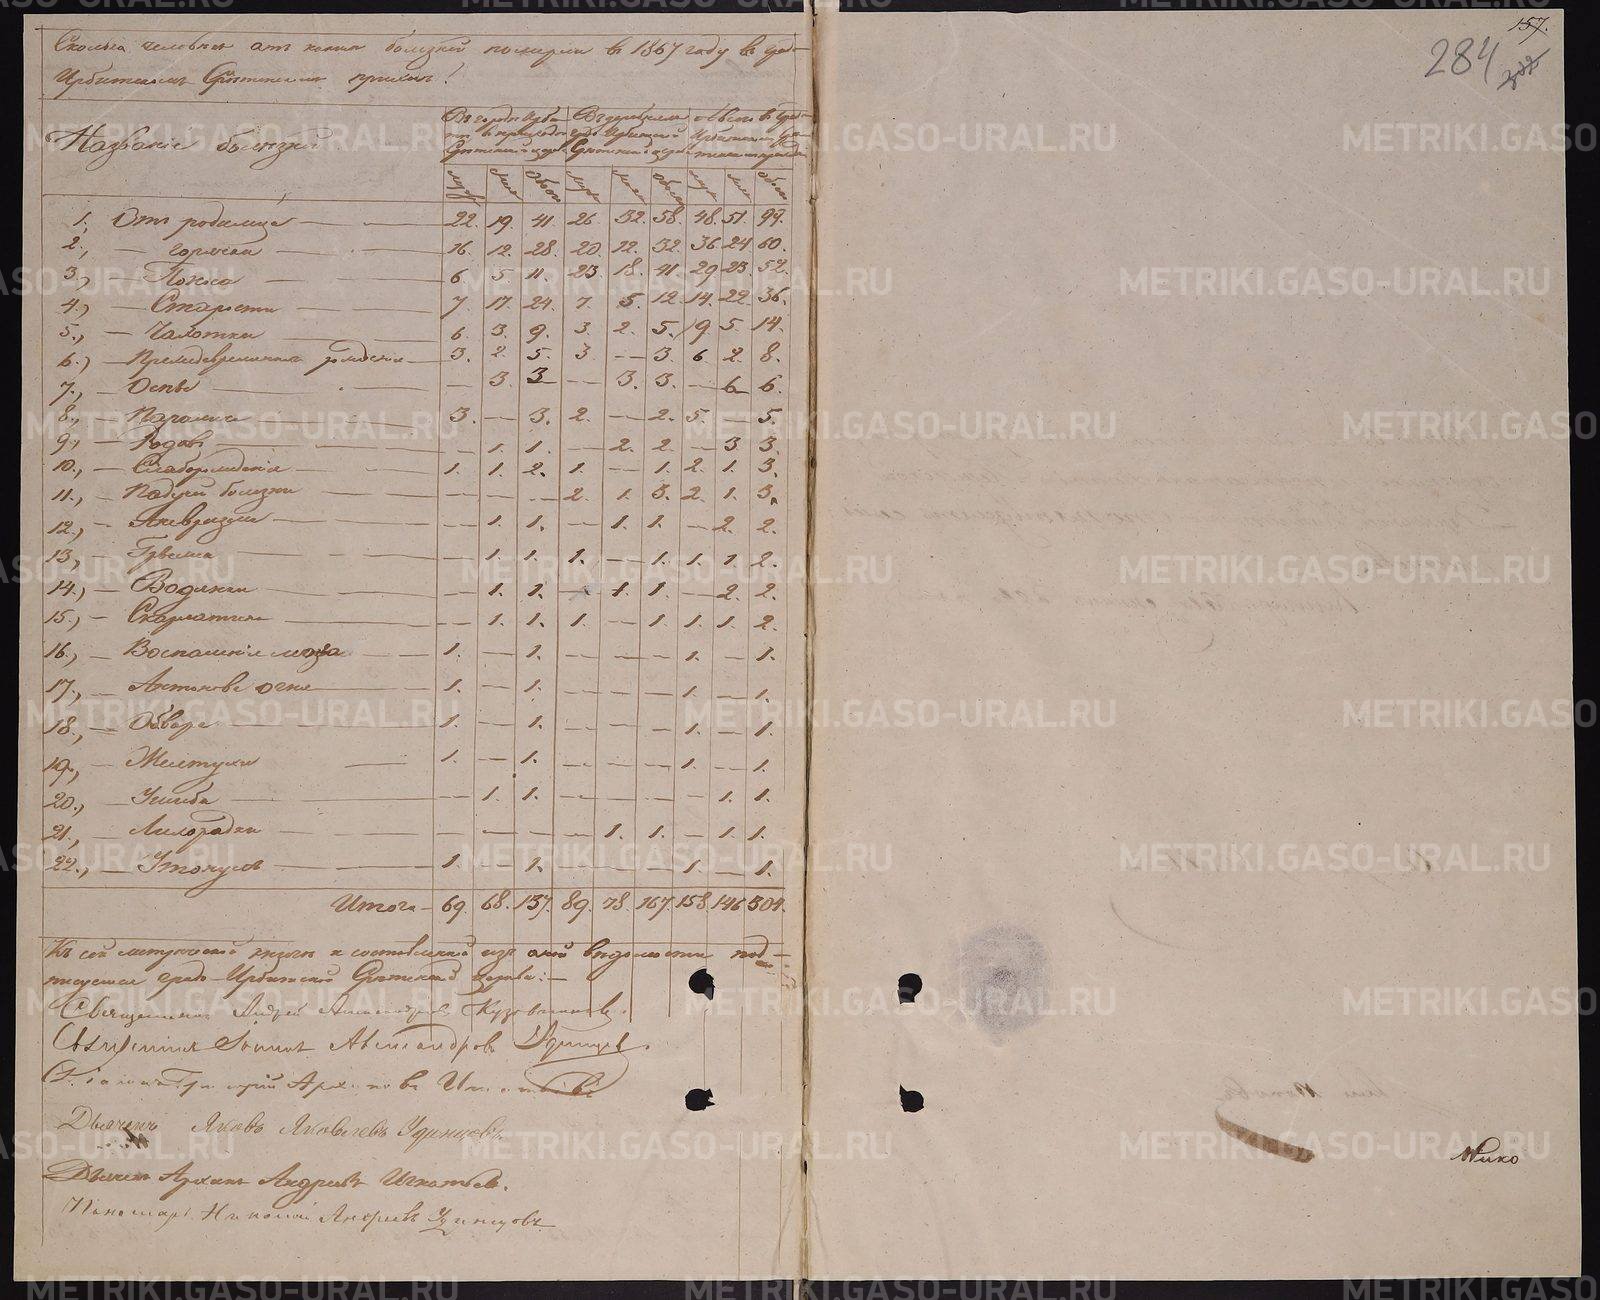 157.
284
Сколько человекъ отъ какихъ болезней померли въ 1867 году въ градо-
Ирбитскомъ Срѣтенскомъ приходѣ!
Названіе болезней
Въ городѣ Ирбити въ приходѣ Срѣтенской церкви
Въ деревняхъ градо Ирбитской Срѣтенской церкви
Всего въ градо Ирбитскомъ
муж. жен. Обоего муж. жен. Обоего муж. жен. Обоего
1., Отъ родимца 22. 19. 41. 26. 32. 58. 48. 51. 99.
2., — горячки 16. 12. 28. 20. 12. 32. 36. 24 60.
3., — Поноса 6 5. 11. 23. 18. 41. 29. 23. 52.
4.) — Старости 7. 17. 24. 7. 5. 12. 14. 22. 36.
5., — Чахотки 6. 3. 9. 3. 2. 5. 9. 5. 14.
6.) — Преждевременнаго рожденія 3. 2. 5. 3. — 3. 6. 2. 8.
7., — Оспы — 3. 3 — 3. 3. — 6 6.
8., — 3. — 3. 2. — 2. 5. — 5.
9., — Родовъ — 1. 1. — 2. 2. — 3. 3.
10., — Слаборожденія 1. 1. 2. 1. — 1. 2. 1. 3.
11., — Падучей болезни — — — 2. 1. 3. 2. 1. 3.
12., — Аневризма — 1. 1. — 1. 1. — 2. 2.
13., — Грыжа — 1. 1. 1. — 1. 1. 1. 2.
14., — Водянки — 1. 1. — 1. 1. — 2. 2.
15., — Скарлатины — 1. 1. 1. — 1. 1. 1. 2.
16., — Воспаленія мозга 1. — 1. — — — 1. — 1.
17., — Антонова огня 1. — 1. — — — 1. — 1.
18., — Обвара 1. — 1. — — — 1. — 1.
19., — Желтухи 1. — 1. — — — 1. — 1.
20., — Ушиба — 1. 1. — — — — 1. 1.
21., — Лихорадки — — — — 1. 1. — 1. 1.
22., — Утонулъ 1. — 1. — — — 1. — 1.
Итого — 69. 68. 137. 89. 78. 167. 158. 146 304.
Къ сей метрической книгѣ и составленной изъ оной вѣдомости под-
писуемся градо-Ирбитской Срѣтенской церкви:—
Священникъ Андрей Александровъ Кузовниковъ.
Священникъ Іоаннъ Александровъ Удинцевъ.
Дьячекъ Яковъ Яковлевъ Удинцевъ.
Дьячекъ Архипъ Андреевъ Игнатьевъ.
Пономарь Николай Андреевъ Удинцовъ
METRIKI.GASO-URAL.RU